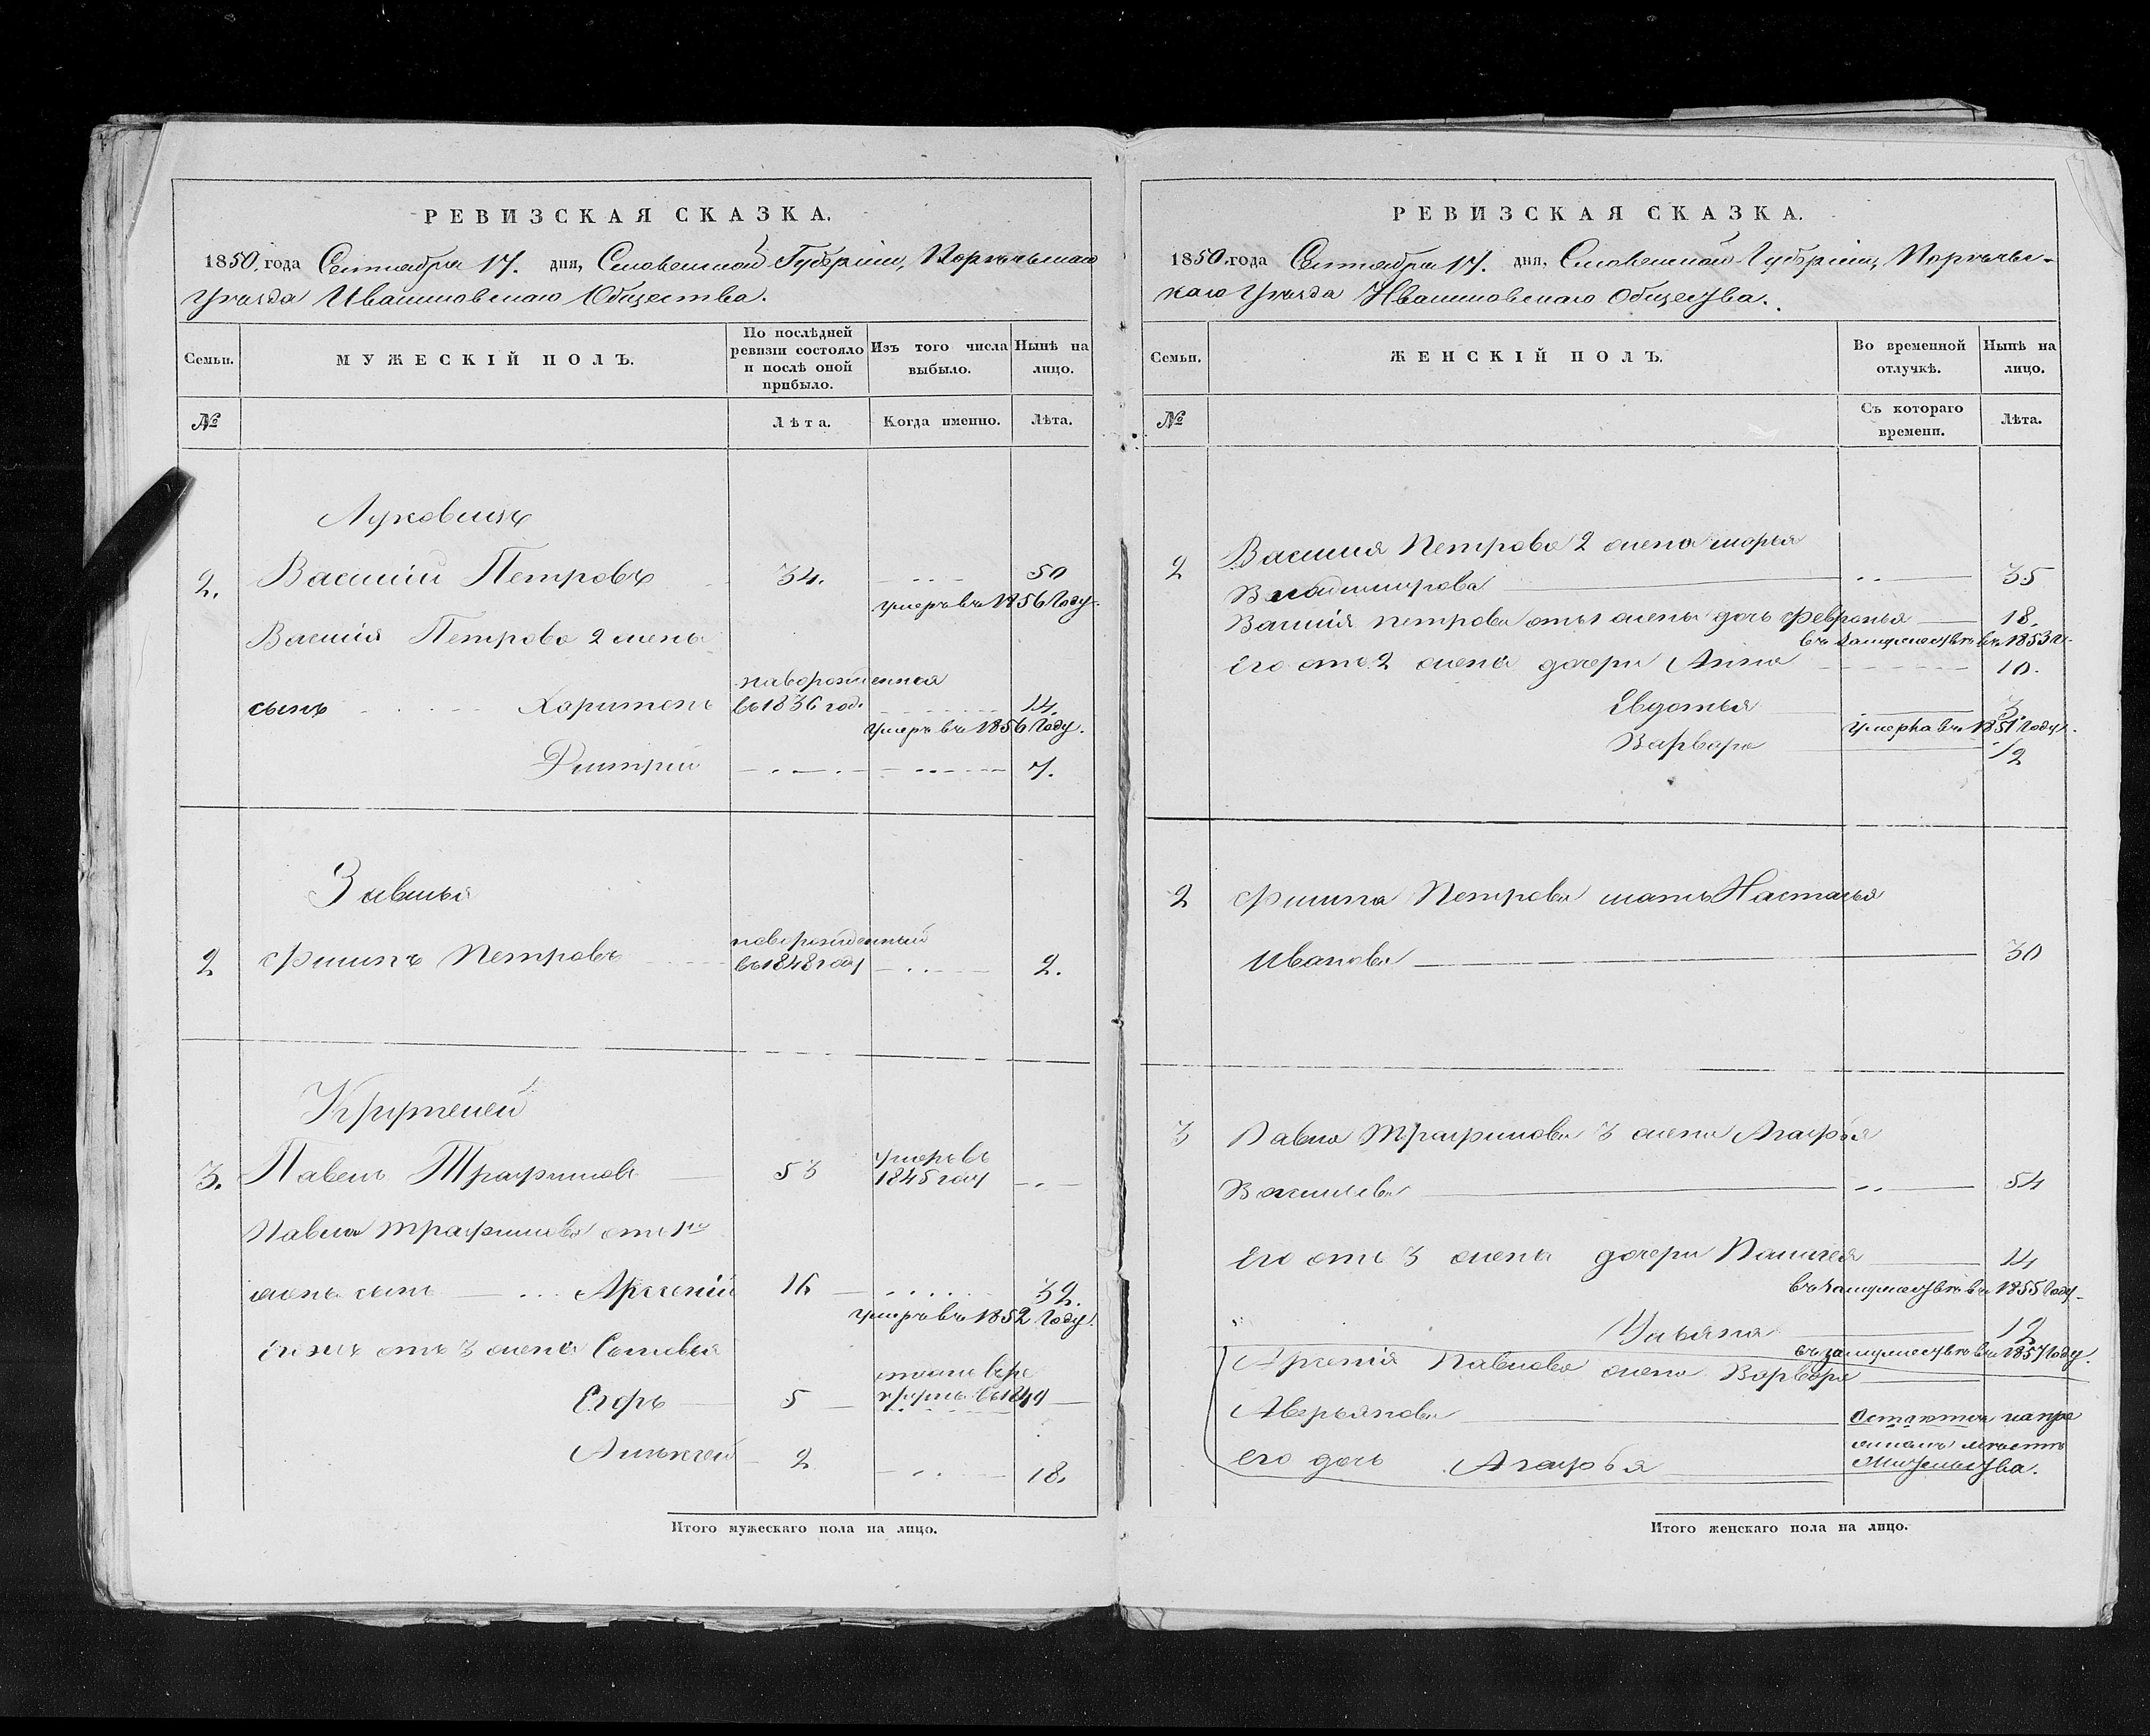 РЕВИЗСКАЯ СКАЗКА.
1850. года Сентября 17. дня, Смоленской Губерніи, Порѣчьскаго
Уѣзда Ивашковскаго Общества.
Семьи.
МУЖЕСКІЙ ПОЛЪ.
По послѣдней ревизіи состояло и послѣ оной прибыло.
Изъ того числа выбыло.
Нынѣ на лицо.
№
Лѣта.
Когда именно.
Лѣта.
2. Василій Петровъ 34. 50
умеръ въ 1856 Году.
Василія Петрова 2 жены
новорожденная
сынъ Харитонъ въ 1836 год. 14.
умеръ въ 1856 Году.
Дмитрій 7.
новорожденный
2 Филипъ Петровъ въ 1848 году 2.
умеръ въ
3. Павелъ Трафимовъ 53 1845 году
Павла Трафимова отъ 1й
жены сынъ Арсеній 16 32.
умеръ въ 1852 Году.
его же отъ 3 жены Сыновья
Егоръ 5 въ 1849
Алексей 2 18.
Итого мужескаго пола на лицо.
РЕВИЗСКАЯ СКАЗКА.
1850. года Сентября 17. дня, Смоленской Губерніи, Порѣчьс-
каго Уѣзда Ивашковскаго Общества.
Семьи.
ЖЕНСКІЙ ПОЛЪ.
Во временной отлучкѣ.
Нынѣ на лицо.
№
Съ котораго времени.
Лѣта.
2 Василія Петрова 2 жена Марья
Владимирова 35
Василія Петрова отъ 1 жены дочь Февронья 18.
въ замужествѣ въ 1853 г.
Его отъ 2 жены дочери Анна 10.
Евдотья 3.
умерла въ 1851 Году.
Варвара 1/2
2 Филипа Петрова мать Настасья
Иванова 30
3 Павла Трафимова 3 жена Агафья
Васильева 54
Его отъ 3 жены дочери Пелагея 14
въ замужествѣ въ 1855 Году.
Ульяна 12
въ замужествѣ въ 1857 Году.
Арсенія Павлова жена Варвара
Аверьянова Остаются на пре
жнемъ мѣстѣ
его дочь Агафья жительства.
Итого женскаго пола на лицо.